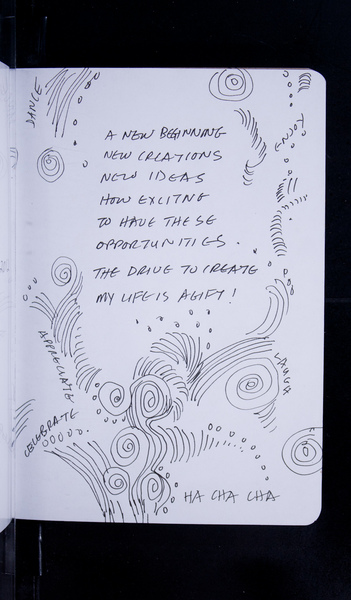 DANCE
A NEW BEGINNING
NEW CREATIONS
NEW IDEAS
HOW EXCITNG
TO HAVE THESE
OPPORTUNITIES.
THE DRIVE TO CREATE
MY LIFE IS A GIFT!
APPRECIATE
LAUGH
CELEBRATE
HA CHA CHA